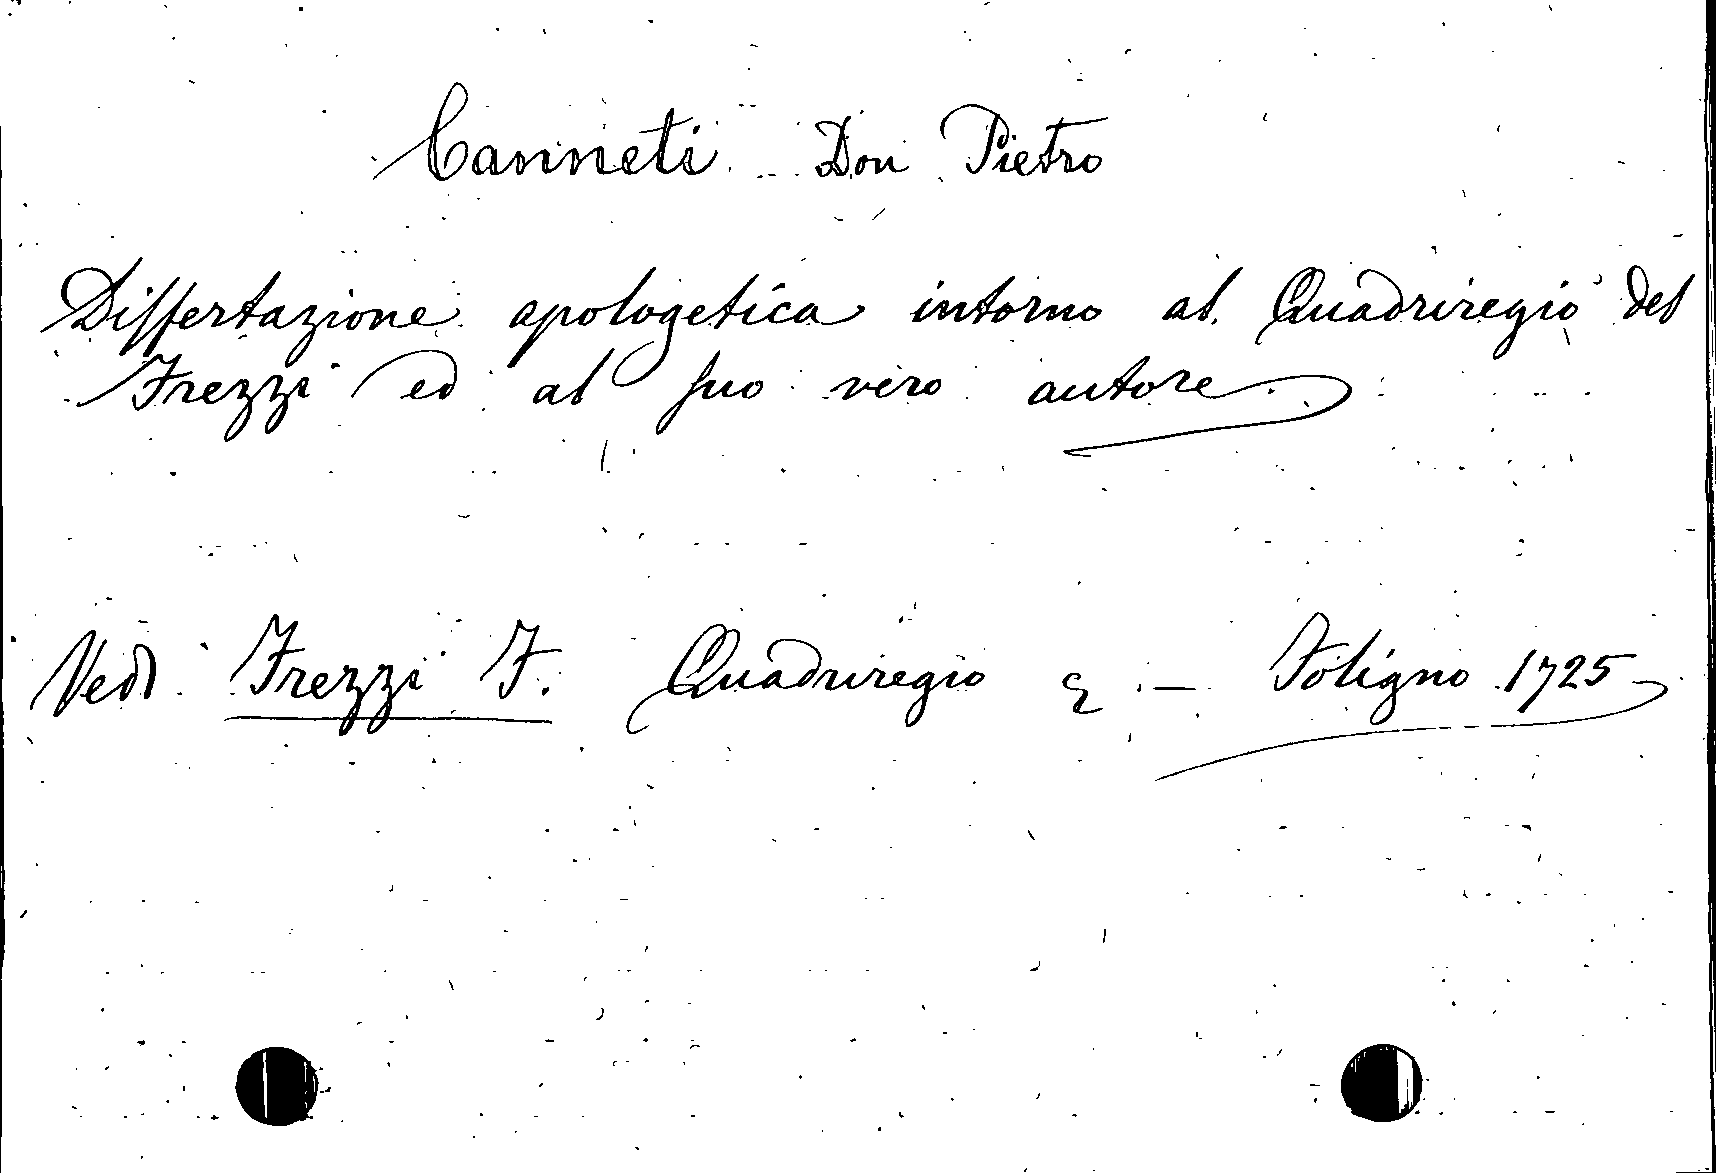 Canneti Don Pietro
Dissertazione apologetica intorno al Quadriregio del
Frezzi ed al suo vero autore
Vedi Frezzi F. Quadriregio & — Foligno 1725